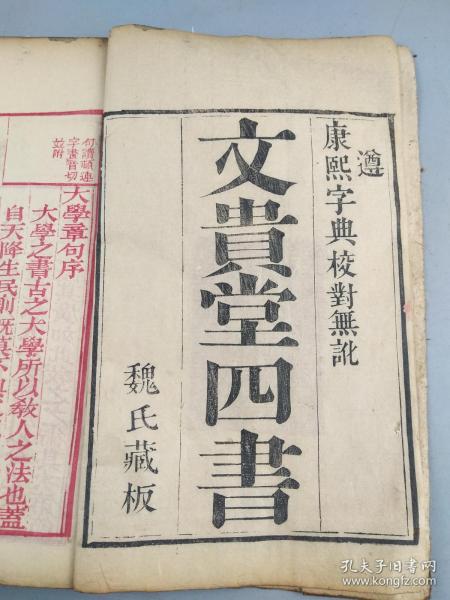 遵
康熙字典校對無訛
文貴堂四書
魏氏藏板
句讀頓連
字畫音切
並附
大學章句序
大學之書古之大學所以教人之法也蓋
自天降生民則既莫不與
孔夫子旧书网
www.kongfz.com